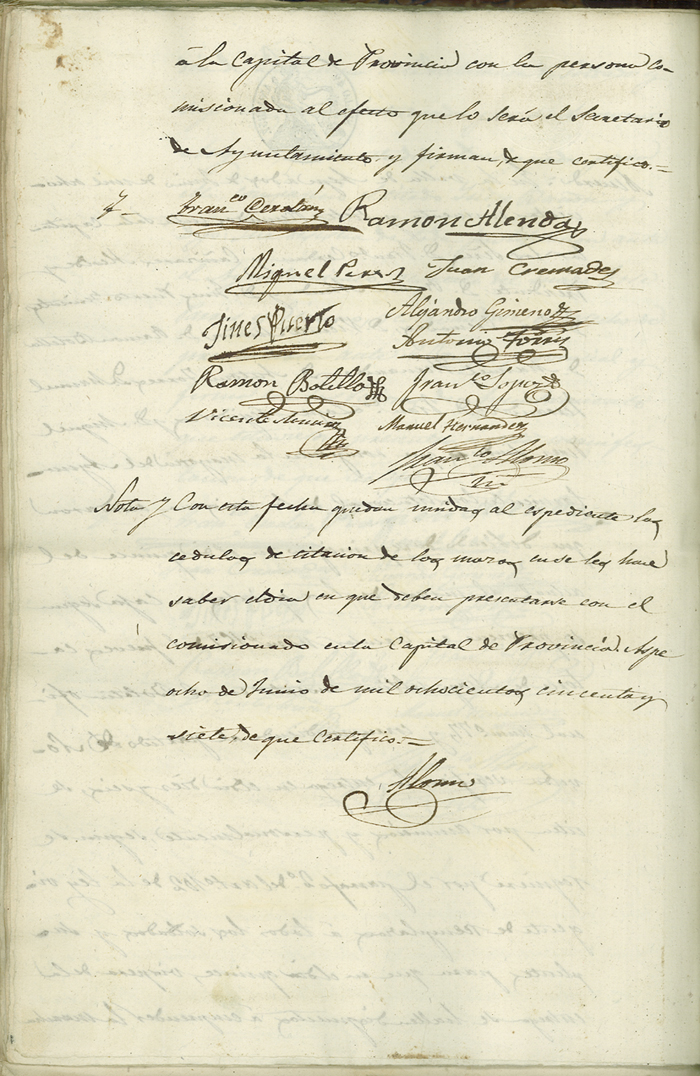 á la Capital de Provincia con la persona co-
misionada al efecto que lo será el Secretario
de Ayuntamiento y firman, de que certifico.=
Fran.co Cerdán Ramon Alenda
Miguel Perez Juan Cremades
Jines Puerto Alejandro Gimeno
Antonio Torres
Ramon Botella Fran.co Lopez
Vicente Manuel Hernandez
Juan Alonso
Nota / Con esta fecha quedan unidas al espediente las
cedulas de citacion de los mozos en se les hace
saber el dia en que deben presentarse con el
comisionado en la Capital de Provincia. Aspe
ocho de Junio de mil ochocientos cincuenta y
siete, de que Certifico.=
Alonso